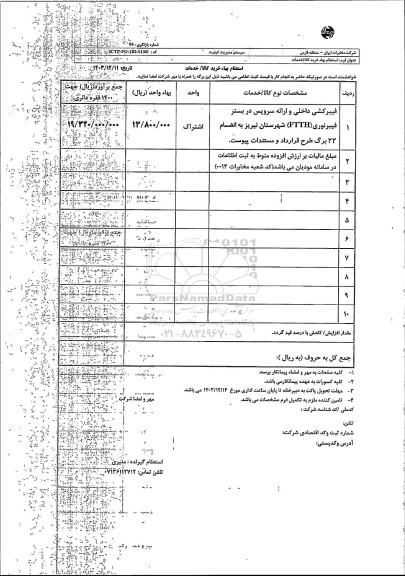 شرکت مخابرات ایران - منطقه فارس
سیستم مدیریت کیفیت
عنوان فرم: استعلام بهاء خرید کالا/خدمات
استعلام بهاء خرید کالا/ خدمات
تاریخ: ۱۴۰۳/۱۲/۱۱
خواهشمند است در صورتیکه حاضر به انجام کار با قیمت ثابت اعلامی می باشید ذیل این برگه را همراه با مهر شرکت امضا نمایید.
ردیف
مشخصات نوع کالا/خدمات
واحد
بهاء واحد (ریال)
جمع برآورد(ریال) جهت ۱۴۰۰ فقره دائری
۱
فیبرکشی داخلی و ارائه سرویس در بستر
فیبرنوری(FTTH) شهرستان نیریز به انضمام
۲۲ برگ طرح قرارداد و مستندات پیوست.
اشتراک
۱۳/۸۰۰/۰۰۰
۱۹/۳۲۰/۰۰۰/۰۰۰
۲
مبلغ مالیات بر ارزش افزوده منوط به ثبت اطلاعات
در سامانه مودیان می باشد(کد شعبه مخابرات ۰۰۱۴)
۳
۴
۵
۶
۷
۸
۹
۱۰
ParsNamadData
۰۲۱-۸۸۳۴۹۶۷۰-۵
مقدار افزایش/ کاهش با درصد قید گردد.
جمع کل به حروف (به ریال ):
۱- کلیه صفحات به مهر و امضاء پیمانکار برسد.
۲- کلیه کسورات به عهده پیمانکار می باشد.
۳- مهلت تحویل پاکت به دبیرخانه تا پایان ساعت اداری مورخ ۱۴۰۳/۱۲/۱۴ می باشد.
۴- تامین کننده ملزم به تکمیل فرم مشخصات می باشد.
مهر و امضا شرکت
کدملی /کد شناسه شرکت :
تلفن:
شماره ثبت وکد اقتصادی شرکت:
آدرس وکدپستی:
استعلام گیرنده : منیری
تلفن تماس: ۰۷۱۳۶۱۱۲۷۱۲